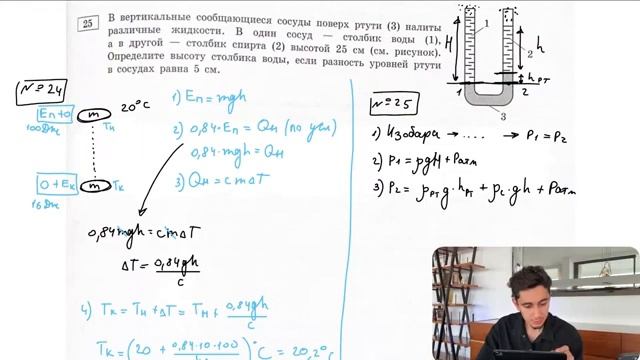 25
В вертикальные сообщающиеся сосуды поверх ртути (3) налиты
различные жидкости. В один сосуд — столбик воды (1),
а в другой — столбик спирта (2) высотой 25 см (см. рисунок).
Определите высоту столбика воды, если разность уровней ртути
в сосудах равна 5 см.
H
1
2
h
hрт
1
2
3
№24
Eп+0
100Дж
m
Tн
20°C
0+Eк
16Дж
m
Tк
1) Eп = mgh
2) 0,84·Eп = Qн (по усл)
0,84·mgh = Qн
3) Qн = cmΔT
0,84mgh = cmΔT
ΔT = 0,84gh/c
4) Tк = Tн + ΔT = Tн + 0,84gh/c
Tк = (20 + 0,84·10·100/)°C = 20,2°C
№25
1) Изобары → .... → P1 = P2
2) P1 = ρgH + Pатм
3) P2 = ρрт g·hрт + ρс·gh + Pатм